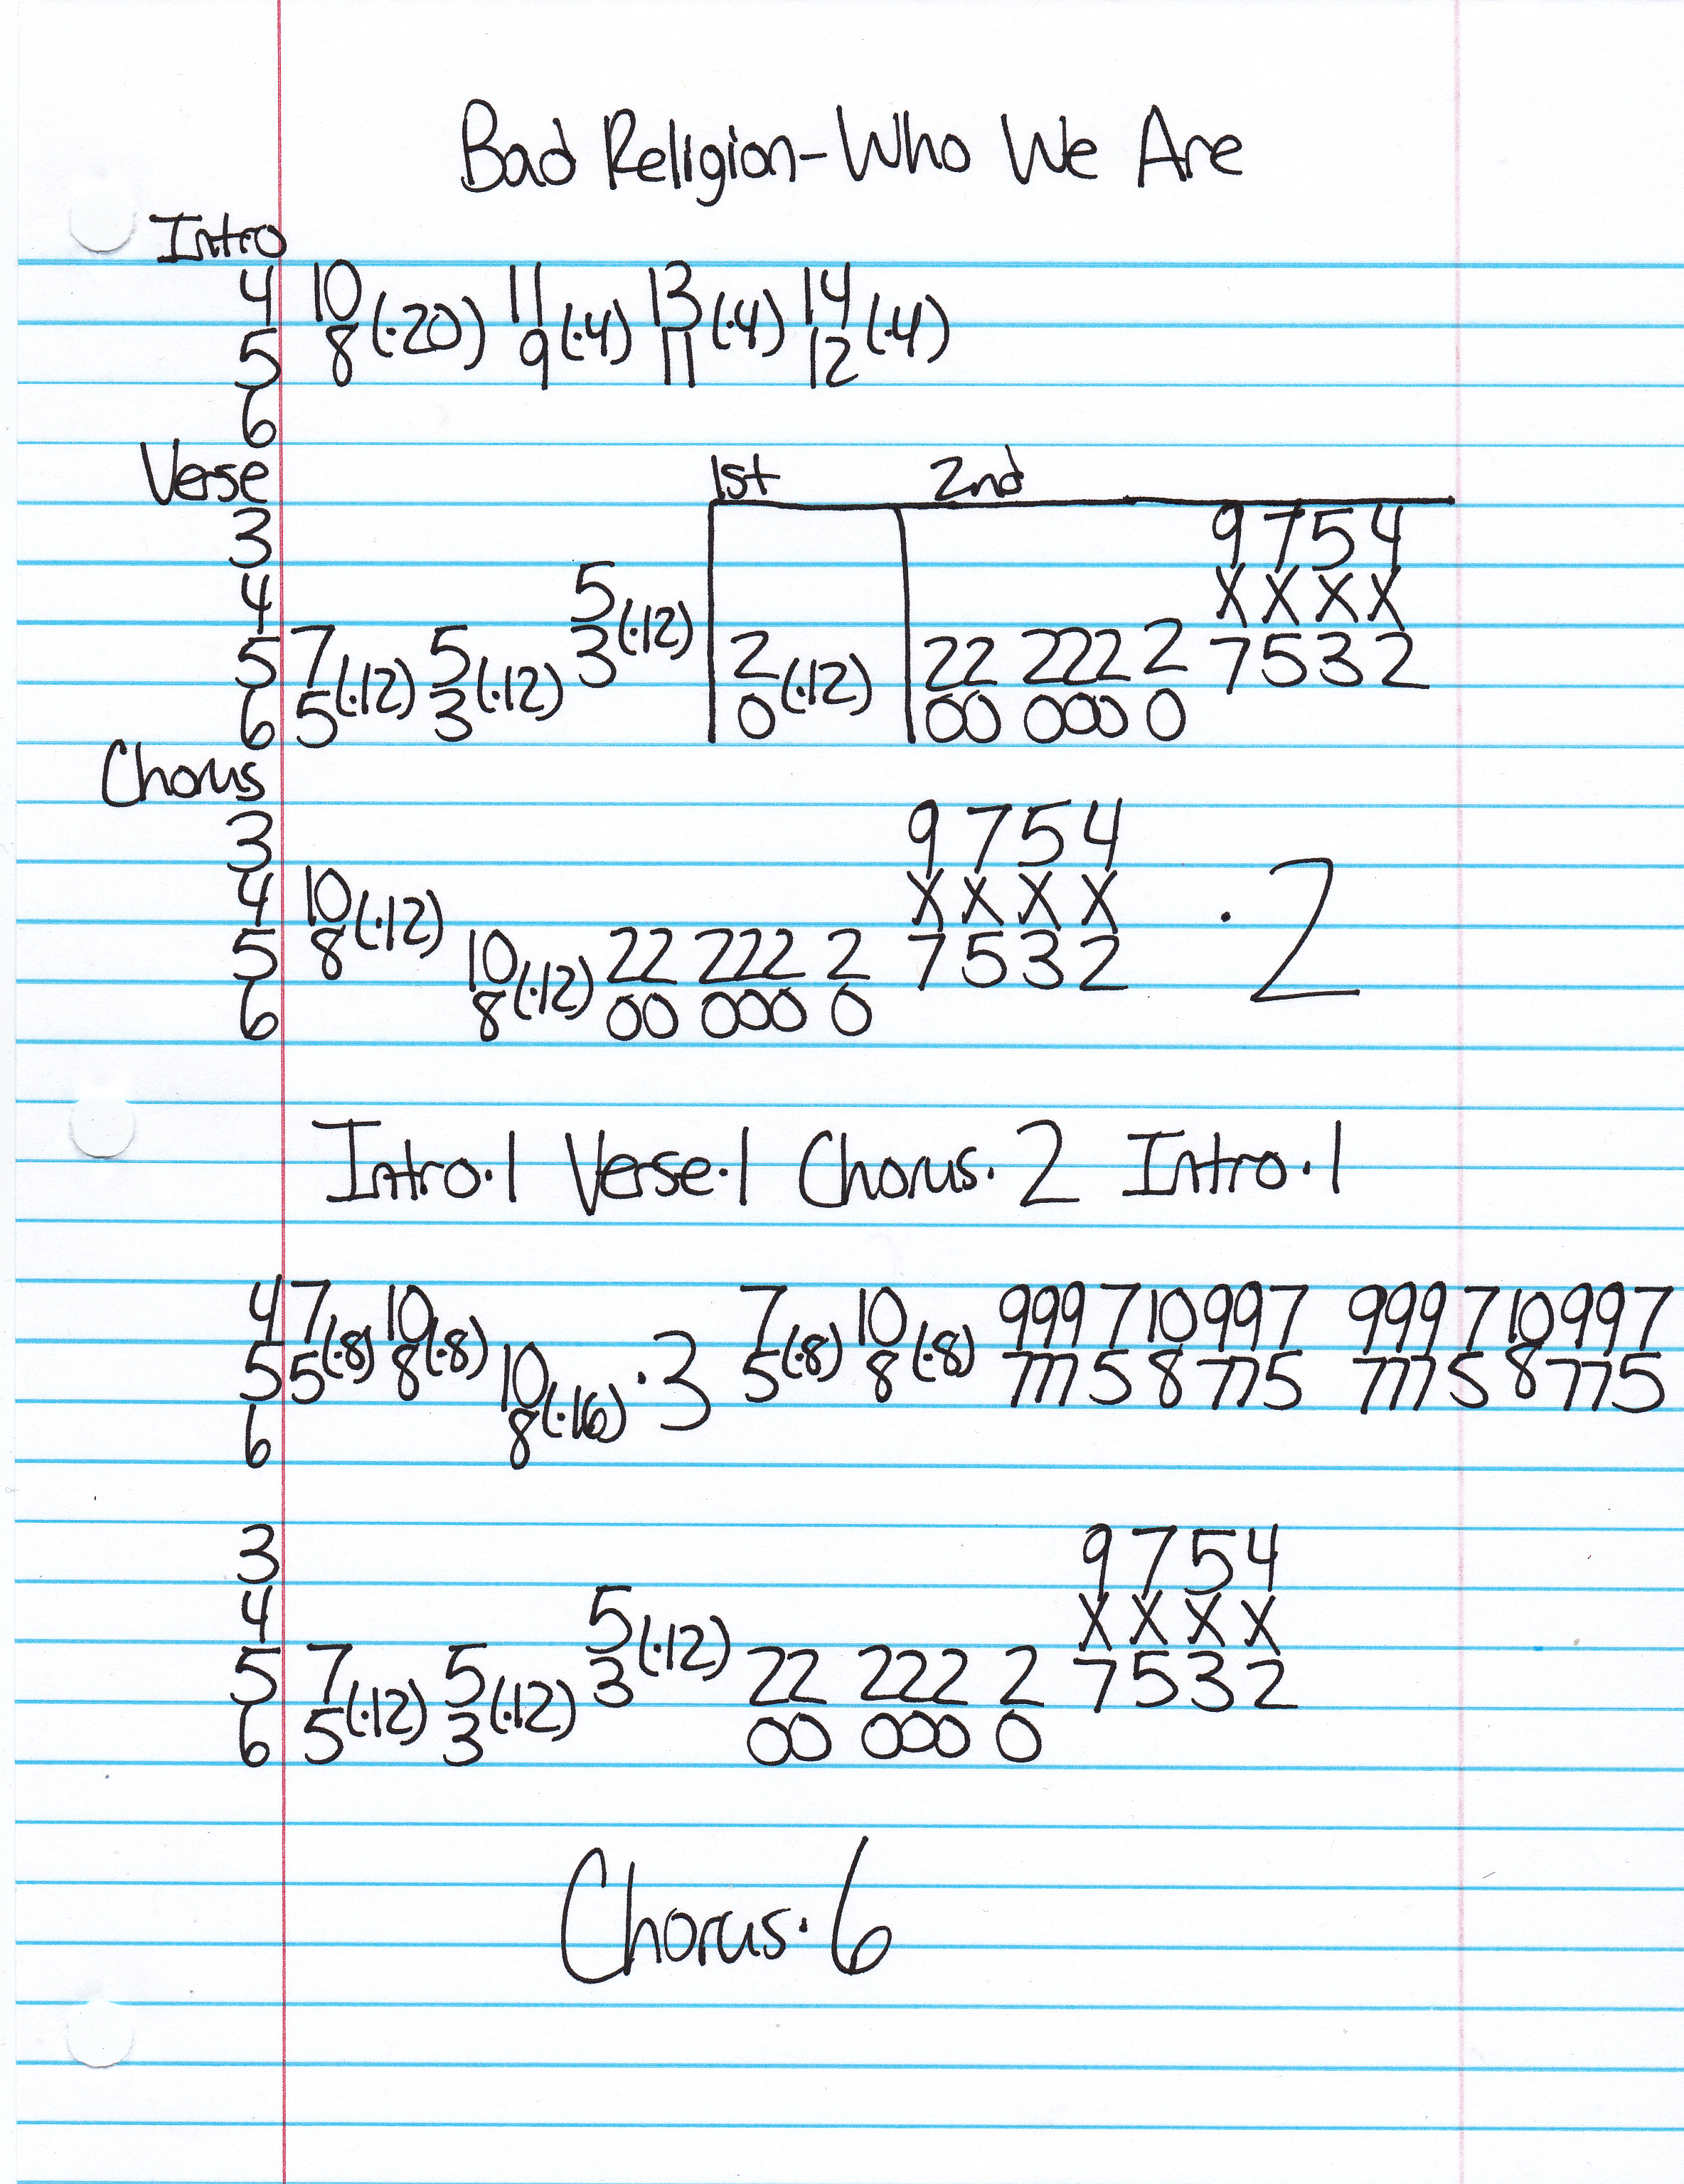 Bad Religion-Who We Are
Intro
4 10 (·20) 11 (·4) 13 (·4) 14 (·4)
5 8 9 11 12
6
Verse 1st 2nd
3 9 7 5 4
4 5 (·12) X X X X
5 7 (·12) 5 (·12) 3 2 (·12) 22 222 2 7 5 3 2
6 5 3 0 00 000 0
Chorus
3 9 7 5 4
4 10 (·12) X X X X · 2
5 8 10 (·12) 22 222 2 7 5 3 2
6 8 00 000 0
Intro·1 Verse·1 Chorus·2 Intro·1
4 7 (·8) 10 (·8) 7 (·8) 10 (·8) 999 7 10 99 7 999 7 10 99 7
5 5 8 10 (·16) ·3 5 8 777 5 8 77 5 777 5 8 77 5
6 8
3 9 7 5 4
4 5 (·12) X X X X
5 7 (·12) 5 (·12) 3 22 222 2 7 5 3 2
6 5 3 00 000 0
Chorus·6